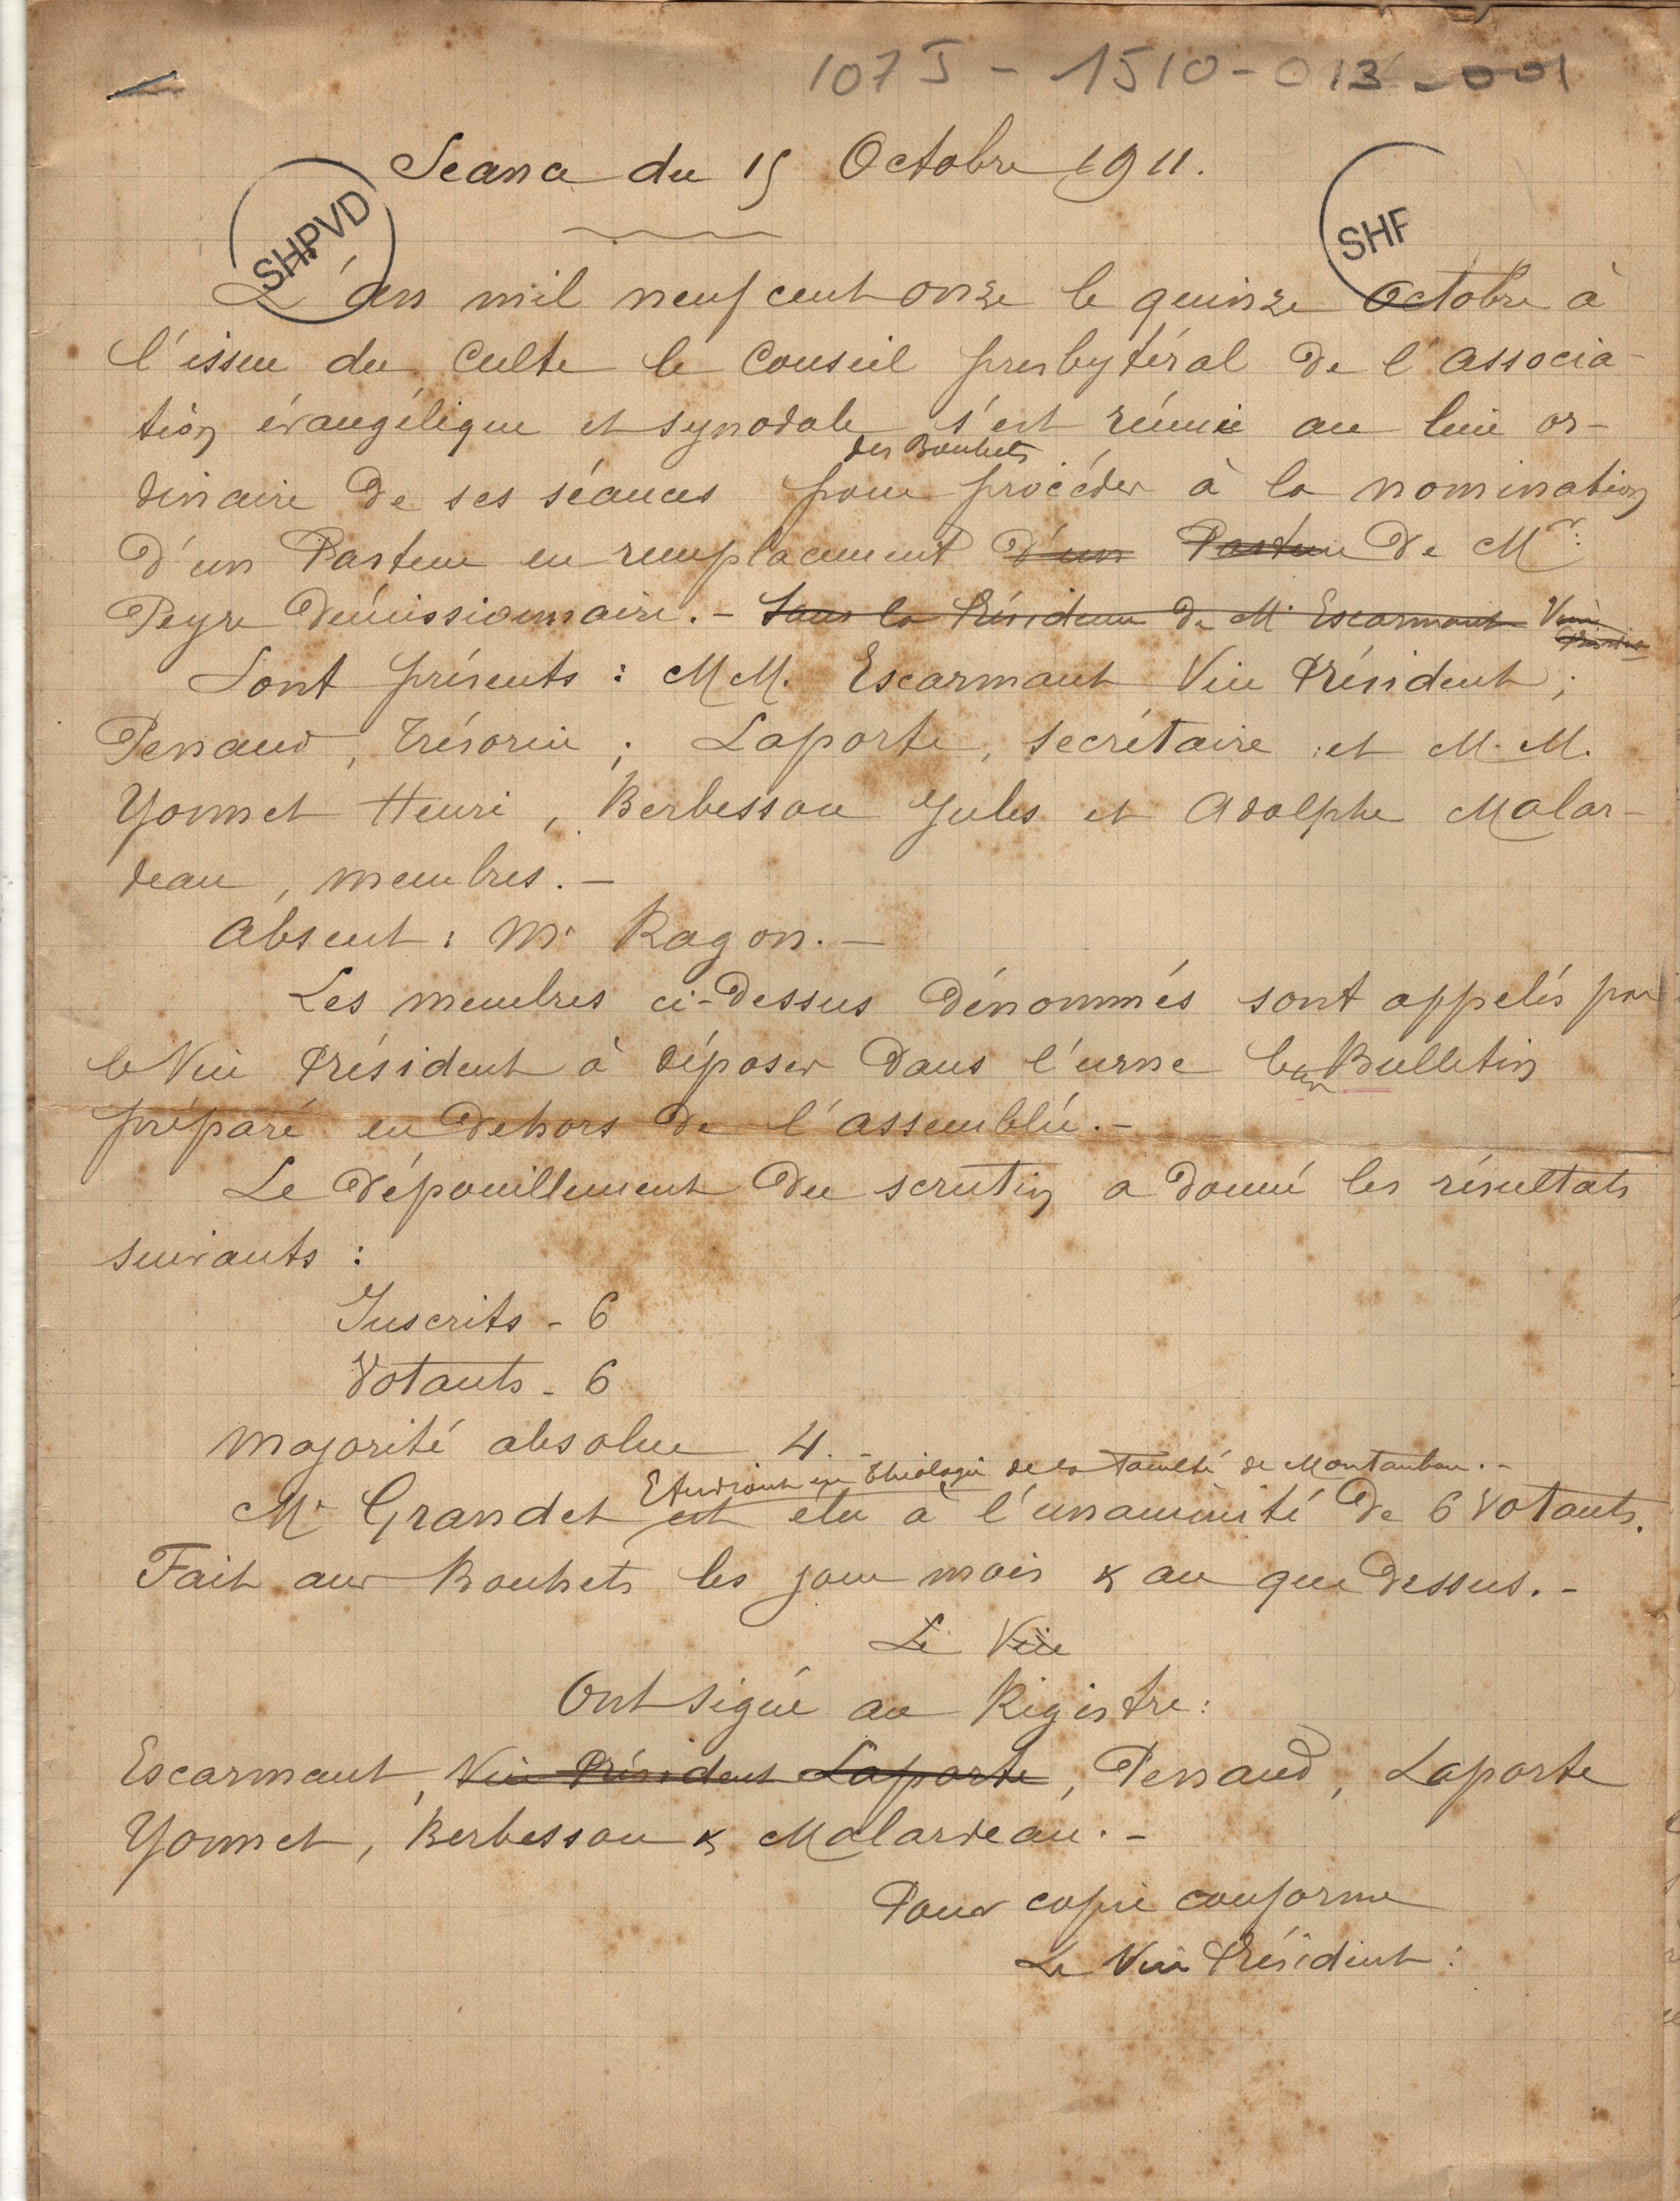 107 J - 1510 - 013 - 001
Seance du 15 Octobre 1911.
SHPVD
SHP
L'an mil neuf cent onze le quinze Octobre à
l'issue du Culte le Conseil presbytéral de l'associa-
tion évangélique et synodale s'est réunie au lieu or-
des Bouhets
dinaire de ses séances pour procéder à la nomination
d'un Pasteur en remplacement d'un Pasteur de Mr:
Peyre démissionnaire. - Sous la Présidence de M. Escarmant Vice
Président
Sont présents : MM. Escarmant Vice Président ;
Penaud, Trésorier ; Laporte, secrétaire et M. M.
Yonnet Henri, Berbessou Jules et Adolphe Malar-
deau, membres. -
Absent : Mr Ragon. -
Les membres ci-dessus dénommés sont appelés par
le Vice Président à déposer dans l'urne leur Bulletin
préparé en dehors de l'assemblée. -
Le dépouillement du scrutin a donné les résultats
suivants :
Inscrits - 6
Votants - 6
Majorité absolue 4. -
Etudiant en théologie de la faculté de Montauban. -
Mr Grandet est élu à l'unanimité de 6 votants.
Fait aux Bouhets les jour mois & an que dessus. -
Le Vice
Ont signé au Régistre :
Escarmant, Vice Président Laporte, Penaud, Laporte
Yonnet, Berbessou & Malardeau. -
Pour copie conforme
Le Vice Président :